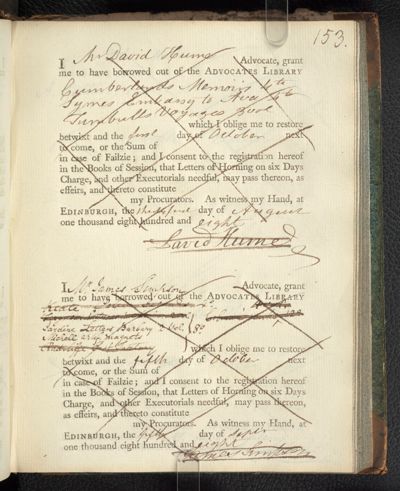 153.
I Mr David Hume Advocate, grant
me to have borrowed out of the ADVOCATES LIBRARY
Cumberland's Memoirs 4to
Symes Embassy to Ava 4to
Turnbulls Voyages
which I oblige me to restore
betwixt and the first day of October next
to come, or the Sum of
in case of Failzie; and I consent to the registration hereof
in the Books of Session, that Letters of Horning on six Days
Charge, and other Executorials needful, may pass thereon, as
effeirs, and thereto constitute
my Procurators. As witness my Hand, at
EDINBURGH, the day of August
one thousand eight hundred and eight
David Hume
I Mr James Simpson Advocate, grant
me to have borrowed out of the ADVOCATES LIBRARY
Keate
Jardine Letters Barbary 2 vol. 8o
which I oblige me to restore
betwixt and the fifth day of October next
to come, or the Sum of
in case of Failzie; and I consent to the registration hereof
in the Books of Session, that Letters of Horning on six Days
Charge, and other Executorials needful, may pass thereon,
as effeirs, and thereto constitute
my Procurators. As witness my Hand, at
EDINBURGH, the fifth day of
one thousand eight hundred and eight
James Simpson